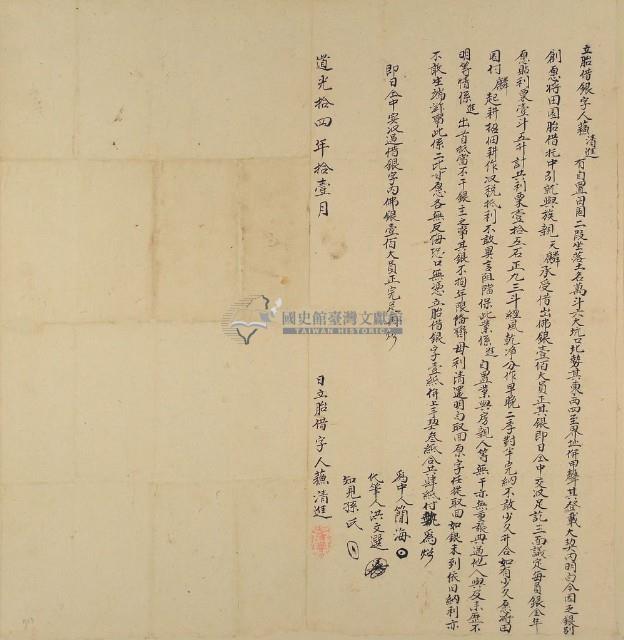 立胎借銀字人蘇清進有自置田園二段坐落土名萬斗六大坑口北勢其東西四至界址併甲聲其登載大契內明白今因乏銀別
創愿將田園胎借托中引就與族親天麟承受借出佛銀壹佰大員正其銀即日仝中交收足訖三面議定每員銀全年
愿貼利粟壹斗五升計共利粟壹拾五石正九三斗經風乾凈分作早晚二季對半完納不敢少欠升合如有少欠愿將田
園付麟起耕招佃耕作收稅抵利不敢異言阻擋保此業係進自置業與房親人等無干亦無重張典過他人與反來歷不
明等情係進出首抵當不干銀主之事其銀不拘年限倘備母利清還明白取回原字任從取回如銀未到依旧納利亦
不敢生端滋事此係二比甘愿各無反悔恐口無憑立胎借銀字壹紙併上手契叁紙合共肆紙付執為炤
即日仝中実收過借銀字內佛銀壹佰大員正完足再炤
為中人簡海
代筆人洪文選
知見孫氏
道光拾四年拾壹月 日立胎借字人蘇清進
國史館臺灣文獻館
TAIWAN HISTORICA